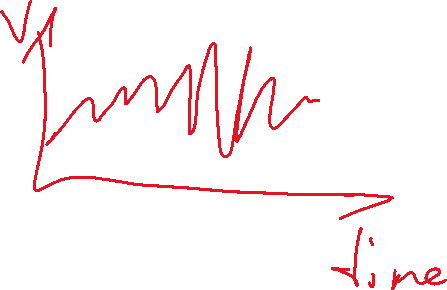 V
time